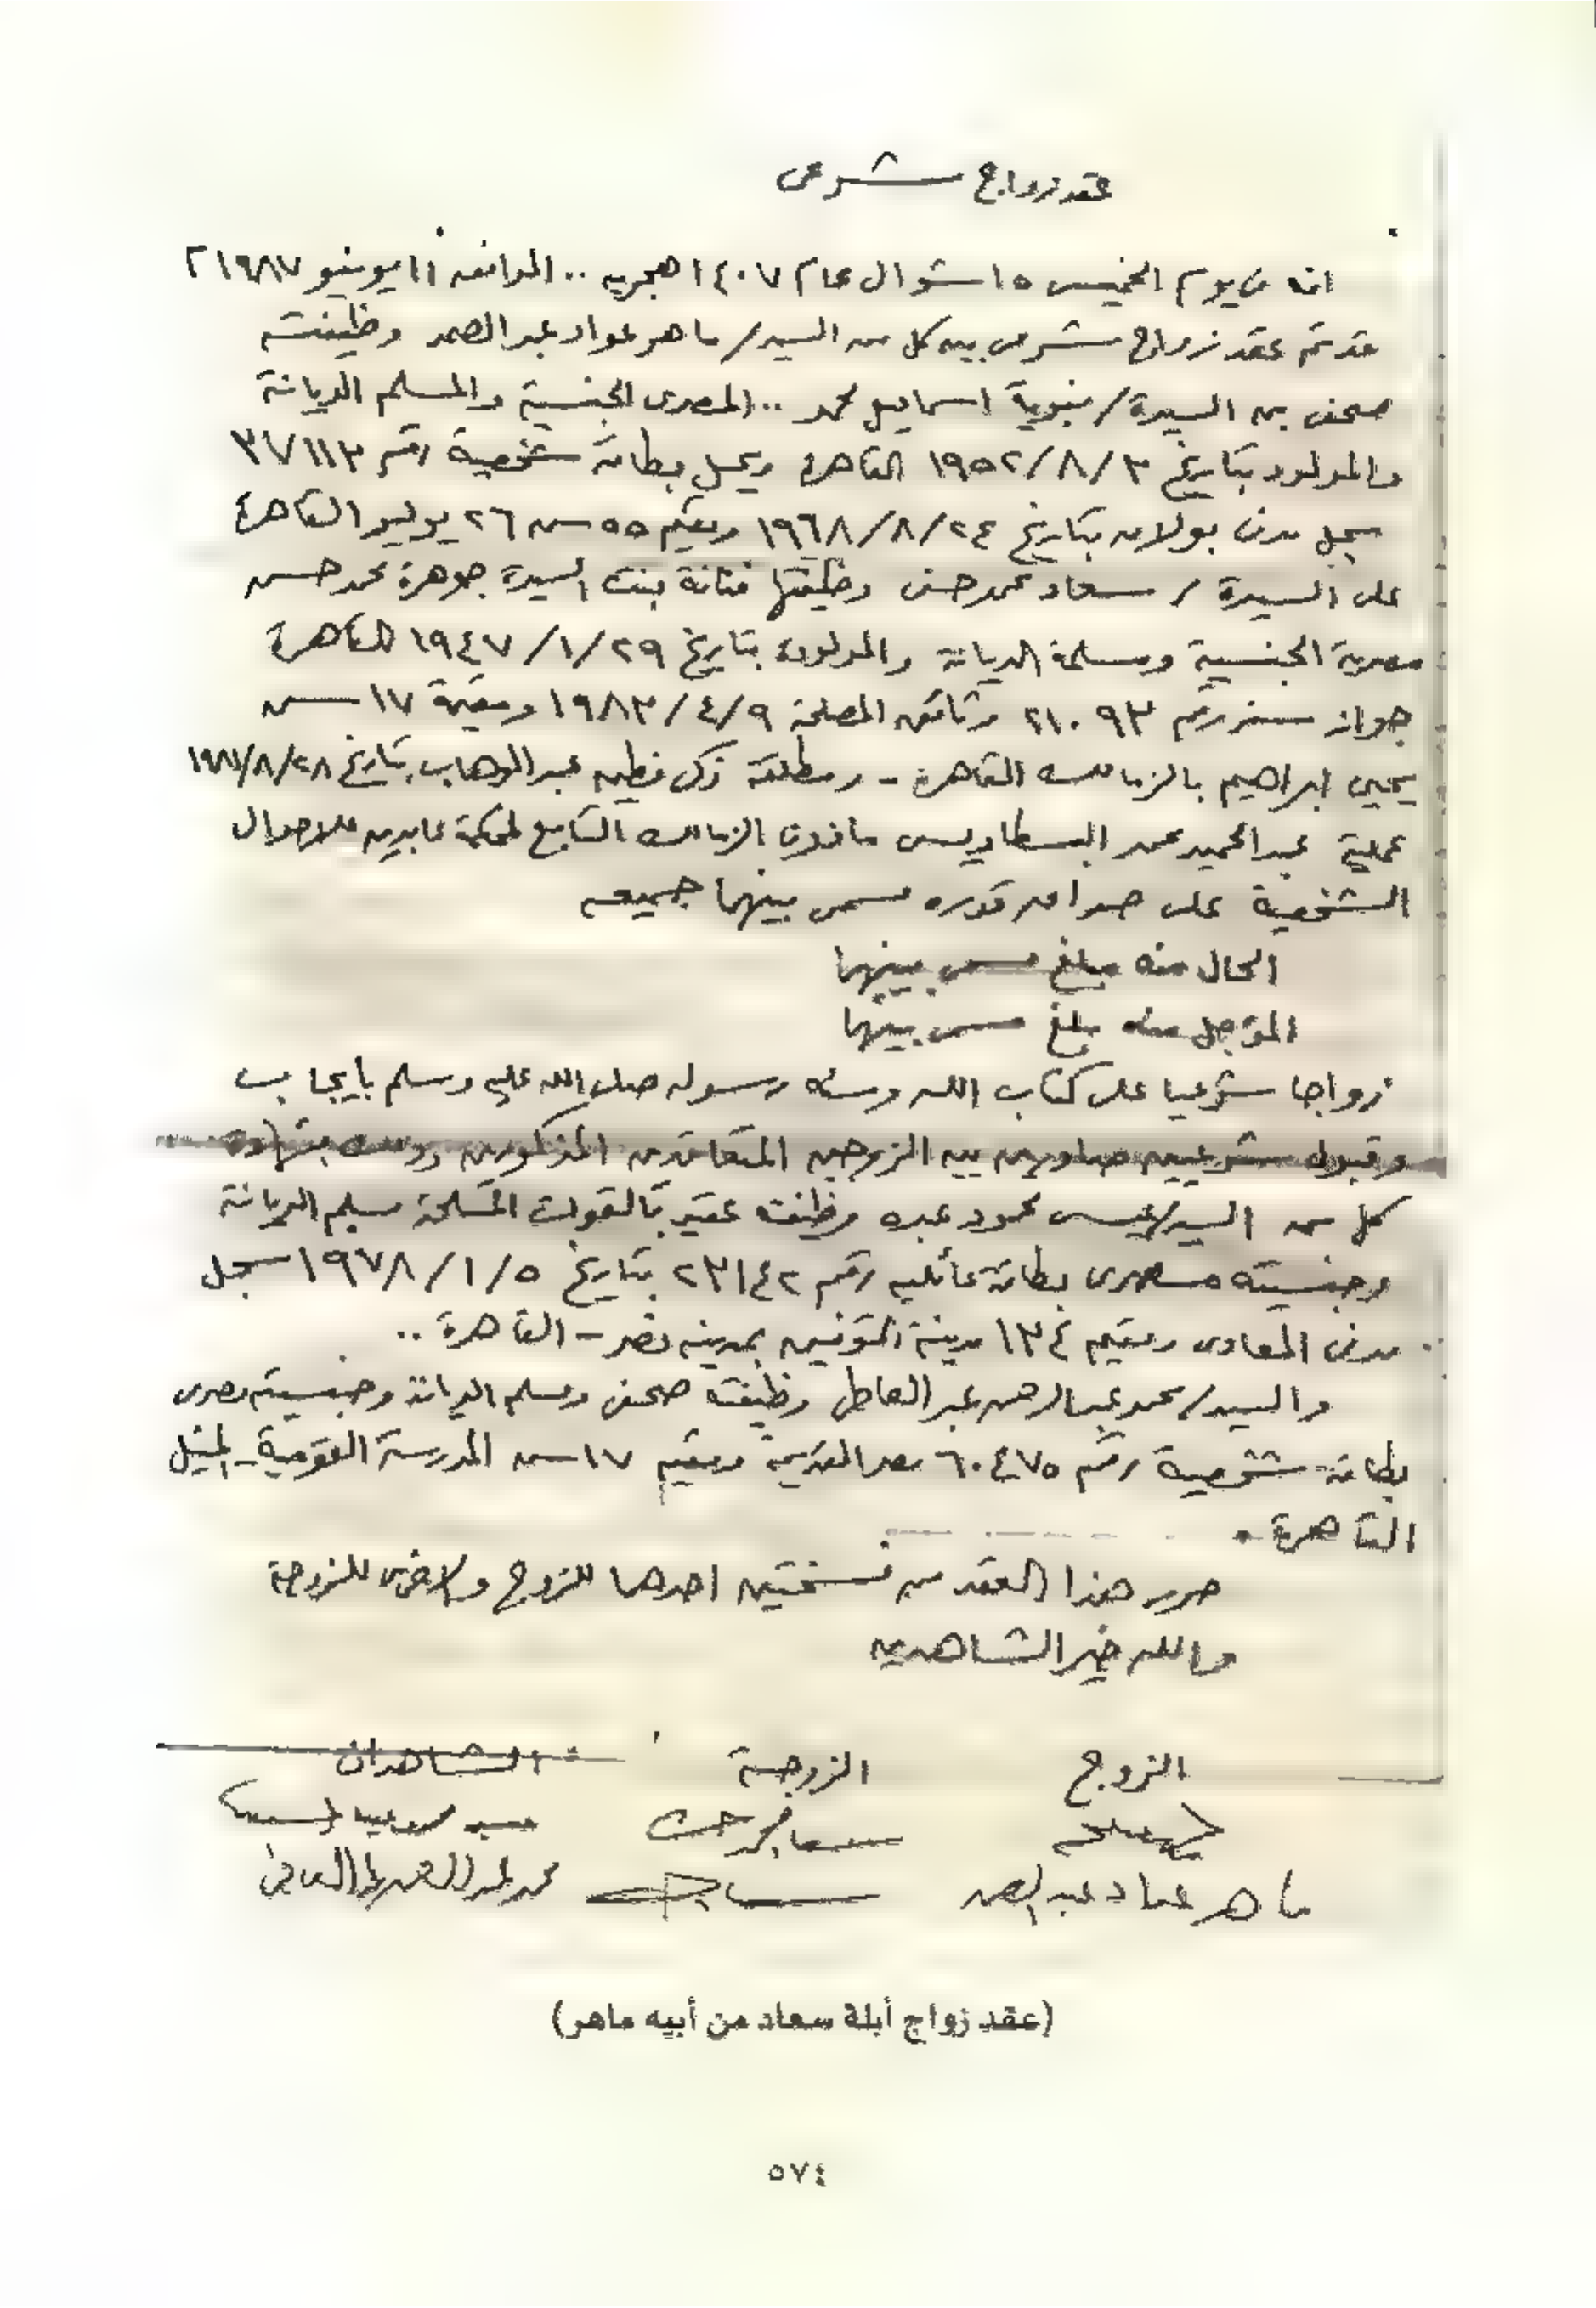 عقد زواج شرعى
انه فى يوم الخميس ١٥ شوال عام ١٤٠٧ هجريه .. الموافق ١١ يونيو ١٩٨٧ م
قد تم عقد زواج شرعى بين كل من السيد / ماهر عواد عبد الصمد وظيفته
صحفى بن السيدة / نبوية اسماعيل محمد .. المصرى الجنسية والمسلم الديانة
والمولود بتاريخ ٣ / ٨ / ١٩٥٢ القاهرة ويحمل بطاقة شخصية رقم ٣٧١١٣
سجل مدنى بولاق بتاريخ ٢٤ / ٨ / ١٩٦٨ ومقيم ٥٥ ش ٢٦ يوليو القاهرة
على السيدة / سعاد محمد حسنى وظيفتها فنانة بنت السيدة جوهرة محمد حسن
مصرية الجنسية ومسلمة الديانة والمولودة بتاريخ ٢٩ / ١ / ١٩٤٧ القاهرة
جواز سفر رقم ٢١٠٩٣ وثائق المصلحة ٩ / ٤ / ١٩٨٣ ومقيمة ١٧ ش
يحيى ابراهيم بالزمالك القاهرة - ومطلقة زكى فطين عبد الوهاب بتاريخ ٢٨ / ٨ / ١٩٨١
عملية عبد الحميد محمد البسطاويسى ماذون الزمالك التابع لمحكمة عابدين للاحوال
الشخصية على صداق قدره مسمى بينهما جميعه
الحال منه مبلغ مسمى بينهما
المؤجل منه مبلغ مسمى بينهما
زواجا شرعيا على كتاب الله وسنه رسوله صلى الله عليه وسلم بايجاب
وقبول شرعيين صادرين بين الزوجين المتعاقدين المذكورين وذلك بشهادة
كل من السيد / عيسى محمود عبده وظيفته عقيد بالقوات المسلحة مسلم الديانة
وجنسيته مصرى بطاقة عائليه رقم ٢٣١٤٢ بتاريخ ٥ / ١ / ١٩٧٨ سجل
مدنى المعادى ومقيم ١٣٤ مدينة التوفيق بمدينه نصر - القاهرة ..
والسيد / محمد عبد الرحمن عبد العاطى وظيفته صحفى ومسلم الديانة وجنسيته مصرى
بطاقة شخصية رقم ٦٠٤٧٥ مصر القديمة ومقيم ١٧ ش المدرسة القومية - المنيل
القاهرة .
حرر هذا العقد من نسختين احدهما للزوج والاخرى للزوجة
والله خير الشاهدين
الزوج الزوجة الشاهدان
سعاد محمد حسنى
ماهر عواد عبد الصمد
(عقد زواج أبلة سعاد من أبيه ماهر)
٥٧٤